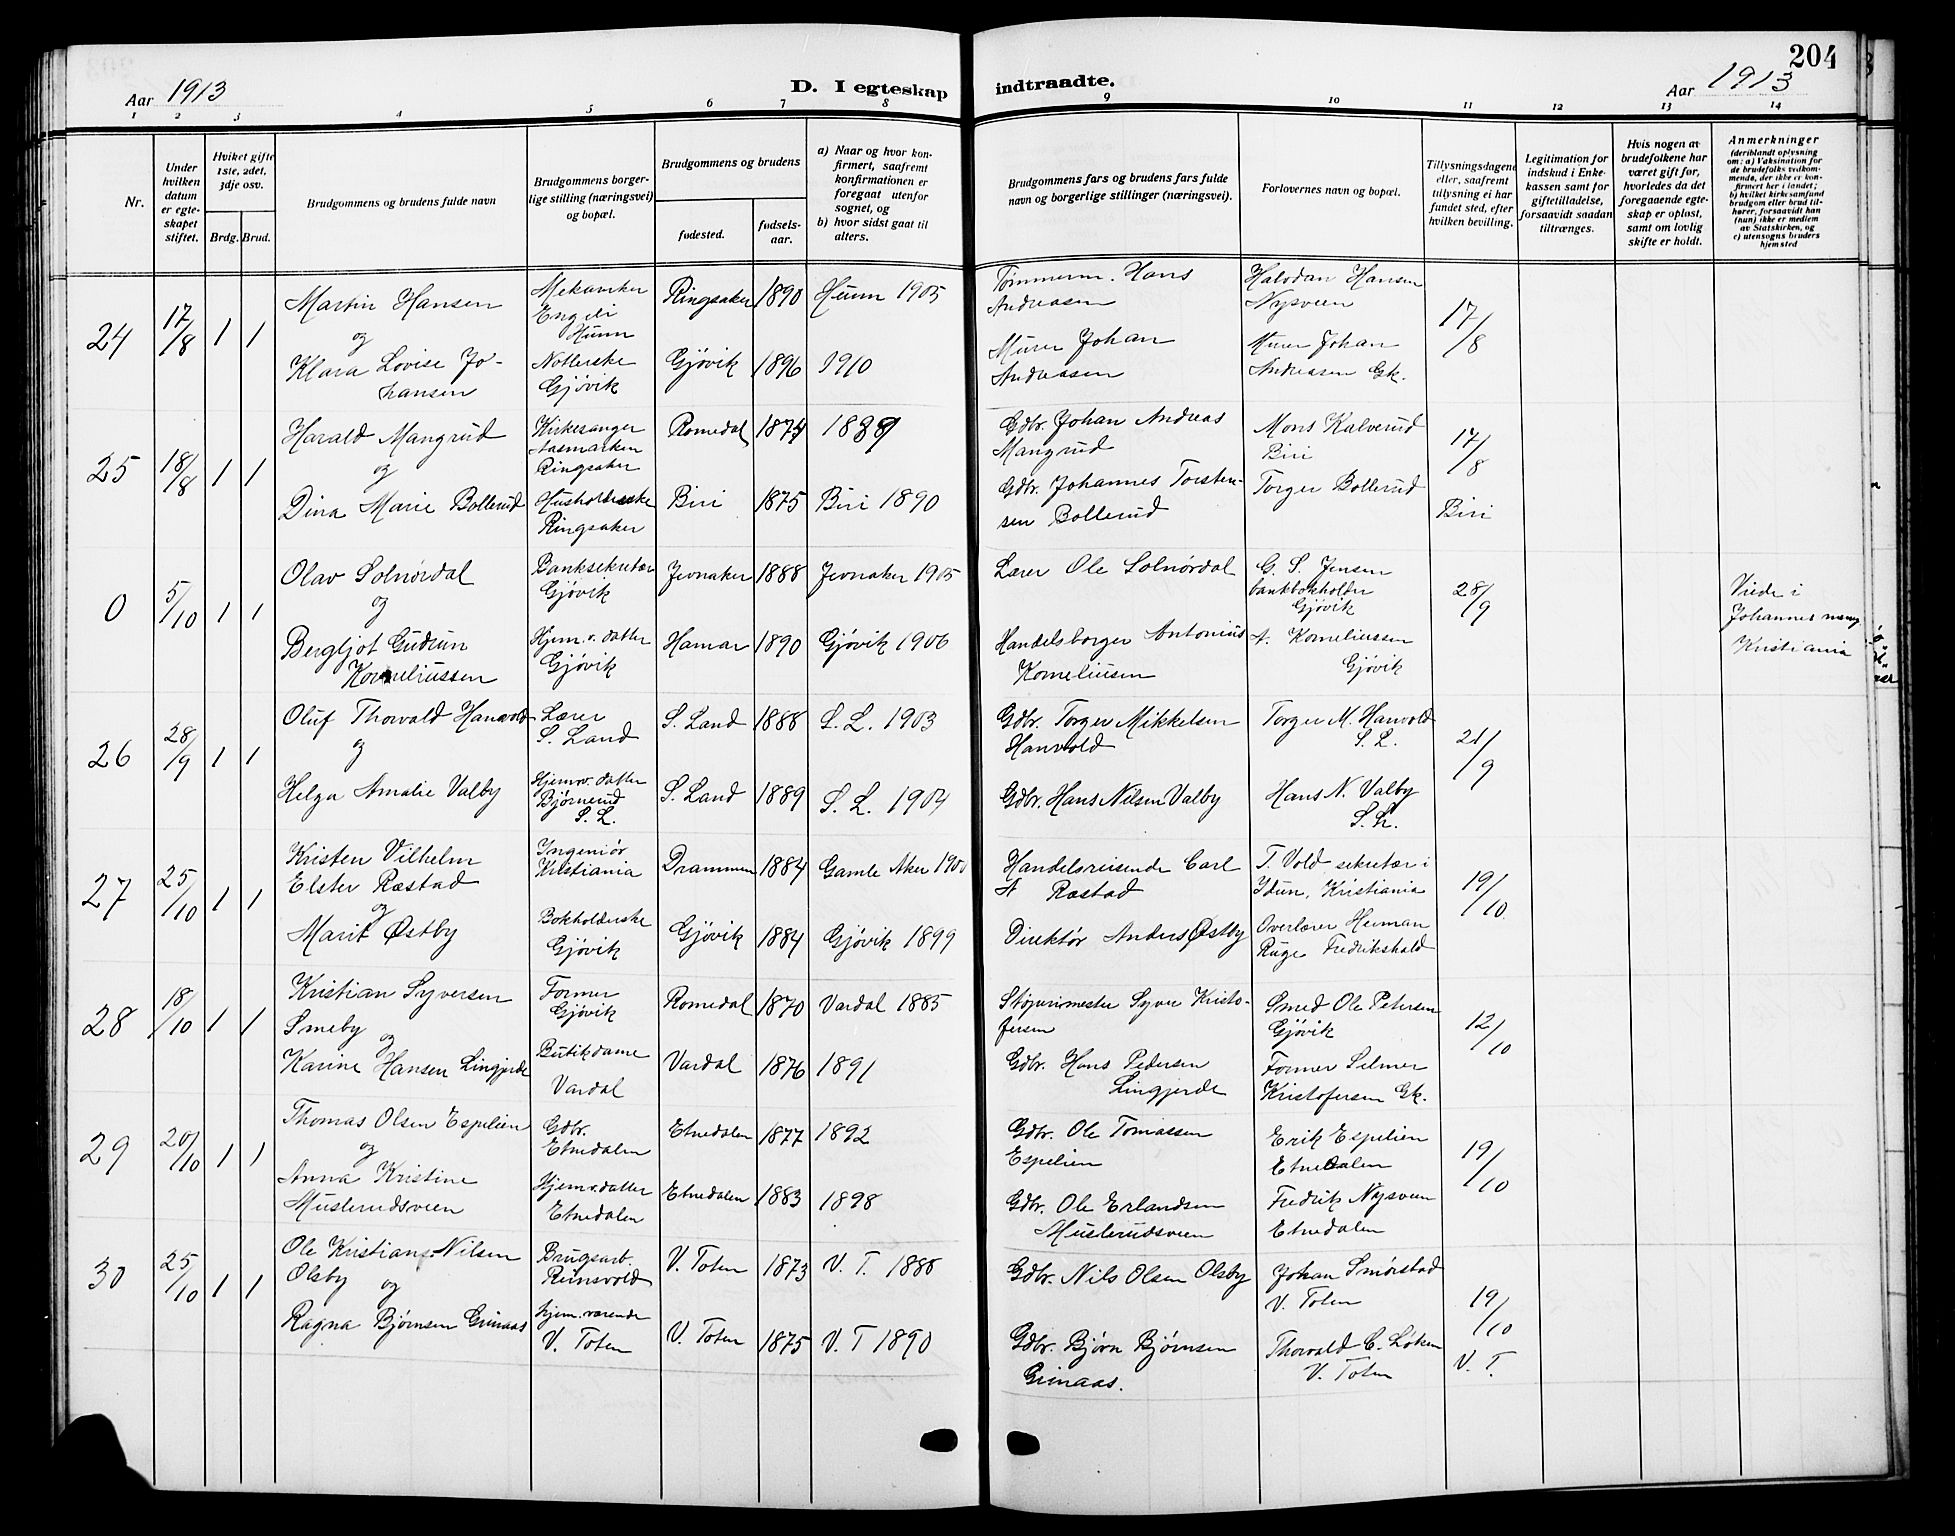 204
Aar 1913
D. I egteskap indtraadte.
Aar 1913
1 2 3 4 5 6 7 8 9 10 11 12 13 14
Nr.
Under hvilken datum er egte-skapet stiftet.
Hvilket gifte 1ste, 2det, 3dje osv.
Brdg. Brud.
Brudgommens og brudens fulde navn
Brudgommens borger-lige stilling (næringsvei) og bopæl.
Brudgommens og brudens
fødested.
fødsels-aar.
a) Naar og hvor kon-firmert, saafremt konfirmationen er foregaat utenfor sognet, og
b) hvor sidst gaat til alters.
Brudgommens fars og brudens fars fulde navn og borgerlige stillinger (næringsvei).
Forlovernes navn og bopæl.
Tillysningsdagene eller, saafremt tillysning ei har fundet sted, efter hvilken bevilling.
Legitimation for indskud i Enke-kassen samt for giftetilladelse, forsaavidt saadan tiltrænges.
Hvis nogen av brudefolkene har været gift før, hvorledes da det foregaaende egte-skap er opløst, samt om lovlig skifte er holdt.
Anmerkninger (deriblandt oplysning om: a) Vaksination for de brudefolks vedkom-mende, der ikke er kon-firmert her i landet; b) hvilket kirkesamfund brudgom eller brud til-hører, forsaavidt han (hun) ikke er medlem av Statskirken, og c) utensogns bruders hjemsted
24 17/8 1 1
Martin Hansen
og
Klara Lovise Jo-
hansen
Mekaniker
Hunn
Gjøvik
Ringsaker 1890 Hunn 1905
Gjøvik 1896 1910
Tømmerm. Hans
Andreasen
Murer Johan
Andreasen
Halvdan Hansen
Nysveen
Murer Johan
Andreasen Gk.
17/8
25 18/8 1 1
Harald Mangrud
og
Dina Marie Bollerud
Kirkesanger
Aasmarken
Ringsaker
Husholderske
Ringsaker
Romedal 1874 1889
Biri 1875 Biri 1890
Gdbr. Johan Andreas
Mangrud
Gdbr. Johannes Torsten-
sen Bollerud
Mons Kalverud
Biri
Torger Bollerud
17/8
Biri
0 5/10 1 1
Olav Solnørdal
og
Bergljot Gudrun
Korneliussen
Banksekretær
Gjøvik
Hjem.v. datter
Gjøvik
Jevnaker 1888 Jevnaker 1905
Hamar 1890 Gjøvik 1906
Lærer Ole Solnørdal
Handelsborger Antonius
Korneliusen
G. S. Jensen
bankbokholder
Gjøvik
A. Korneliussen
Gjøvik
28/9
Viede i
Johannes meng
Kristiania
26 28/9 1 1
Oluf Thorvald Hanvold
og
Helga Amalie Valby
Lærer
S. Land
Hjemv. datter
Bjørnerud
S. L.
S. Land 1888 S. L. 1903
S. Land 1889 S. L. 1904
Gdbr. Torger Mikkelsen
Hanvold
Gdbr. Hans Nilsen Valby
Torger M. Hanvold
S. L.
Hans N. Valby
S. L.
21/9
27 25/10 1 1
Kristen Vilhelm
Elster Ræstad
og
Marit Østby
Ingeniør
Kristiania
Bokholderske
Gjøvik
Drammen 1884 Gamle Aker 1900
Gjøvik 1884 Gjøvik 1899
Handelsreisende Carl
A Ræstad
Direktør Anders Østby
T. Vold sekretær i
Idun, Kristiania
Overlærer Herman
Ruge Fredrikshald
19/10
28 18/10 1 1
Kristian Syversen
Smeby
og
Karine Hansen Lingjerde
Former
Gjøvik
Butikdame
Vardal
Romedal 1870 Vardal 1885
Vardal 1876 1891
Støperimester Syver Kristo-
fersen
Gdbr. Hans Pedersen
Lingjerde
Smed Ole Petersen
Gjøvik
Former Selmer
Kristofersen Gk.
12/10
29 20/10 1 1
Thomas Olsen Espelien
og
Anna Kristine
Muslerudsveen
Gdbr.
Etnedalen
Hjemv. datter
Etnedalen
Etnedalen 1877 1892
Etnedalen 1883 1898
Gdbr. Ole Tomassen
Espelien
Gdbr. Ole Erlandsen
Muslerudsveen
Erik Espelien
Etnedalen
Fredrik Nysveen
Etnedalen
19/10
30 25/10 1 1
Ole Kristians. Nilsen
Olsby og
Ragna Bjørnsen Grinaas
Brugsarb.
Reinsvold
hjem.værende
V. Toten
V. Toten 1873 V. T. 1888
V. Toten 1875 V. T 1890
Gdbr. Nils Olsen Olsby
Gdbr. Bjørn Bjørnsen
Grinaas.
Johan Smørstad
V. Toten
Thorvald C. Løken
V. Toten
19/10
V. T.